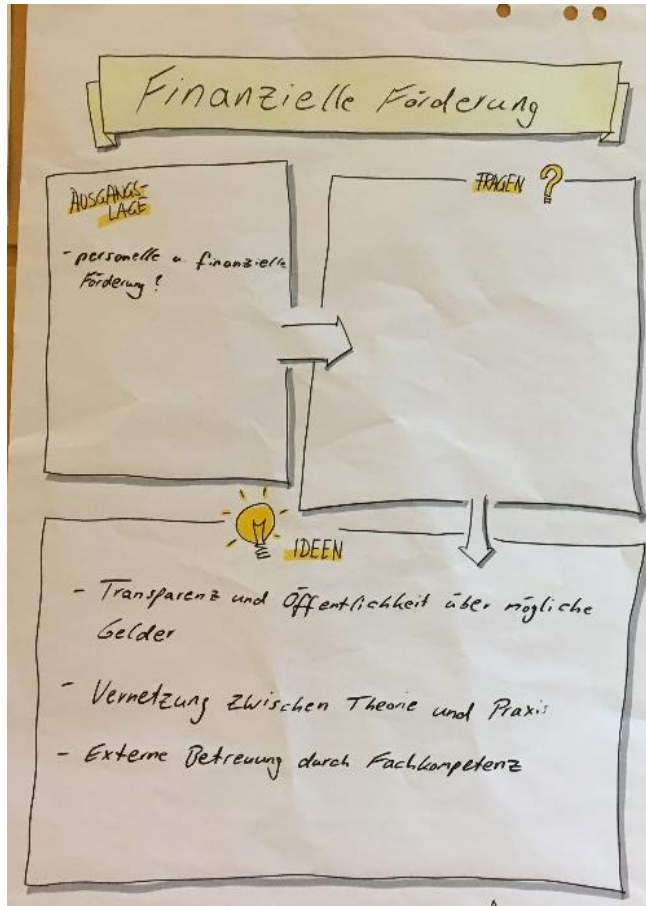 Finanzielle Förderung
AUSGANGS-
LAGE
- personelle u. finanzielle
Förderung?
FRAGEN ?
IDEEN
- Transparenz und Öffentlichkeit über mögliche
Gelder
- Vernetzung zwischen Theorie und Praxis
- Externe Betreuung durch Fachkompetenz